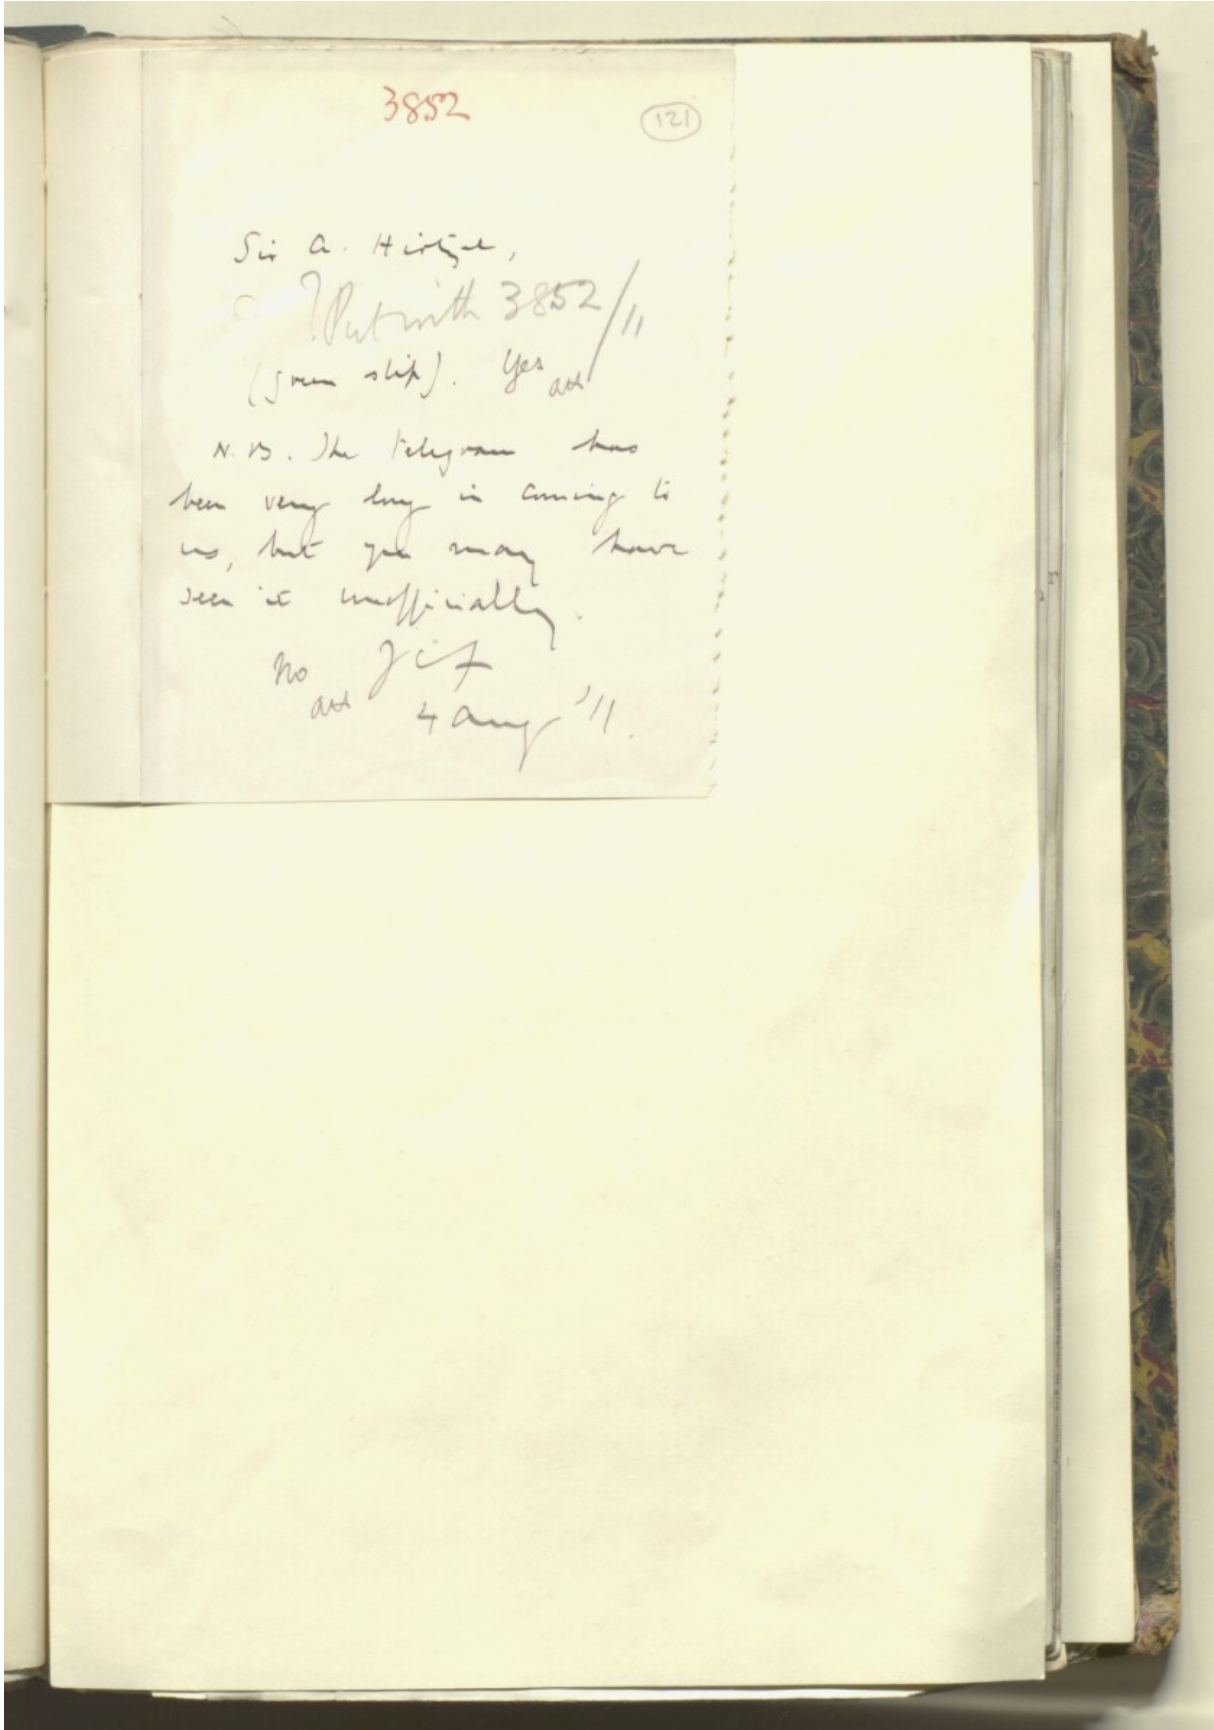 3852
121
Sir A. Hirtzel,
? Put with 3852/11
(green slip). Yes
AH
N.B. The telegram has
been very long in coming to
us, but you may have
seen it unofficially.
No
AH
4 Aug '11.